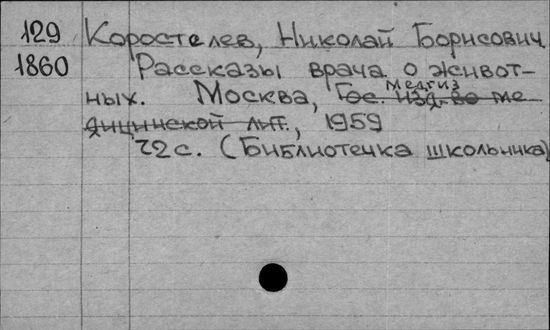 129 Коростелев, Николай Борисович
1860 Рассказы врача о живот-
ных. Москва, Гос. изд-во ме
Медгиз
дицинской лит., 1959
72 с. (Библиотечка школьника)